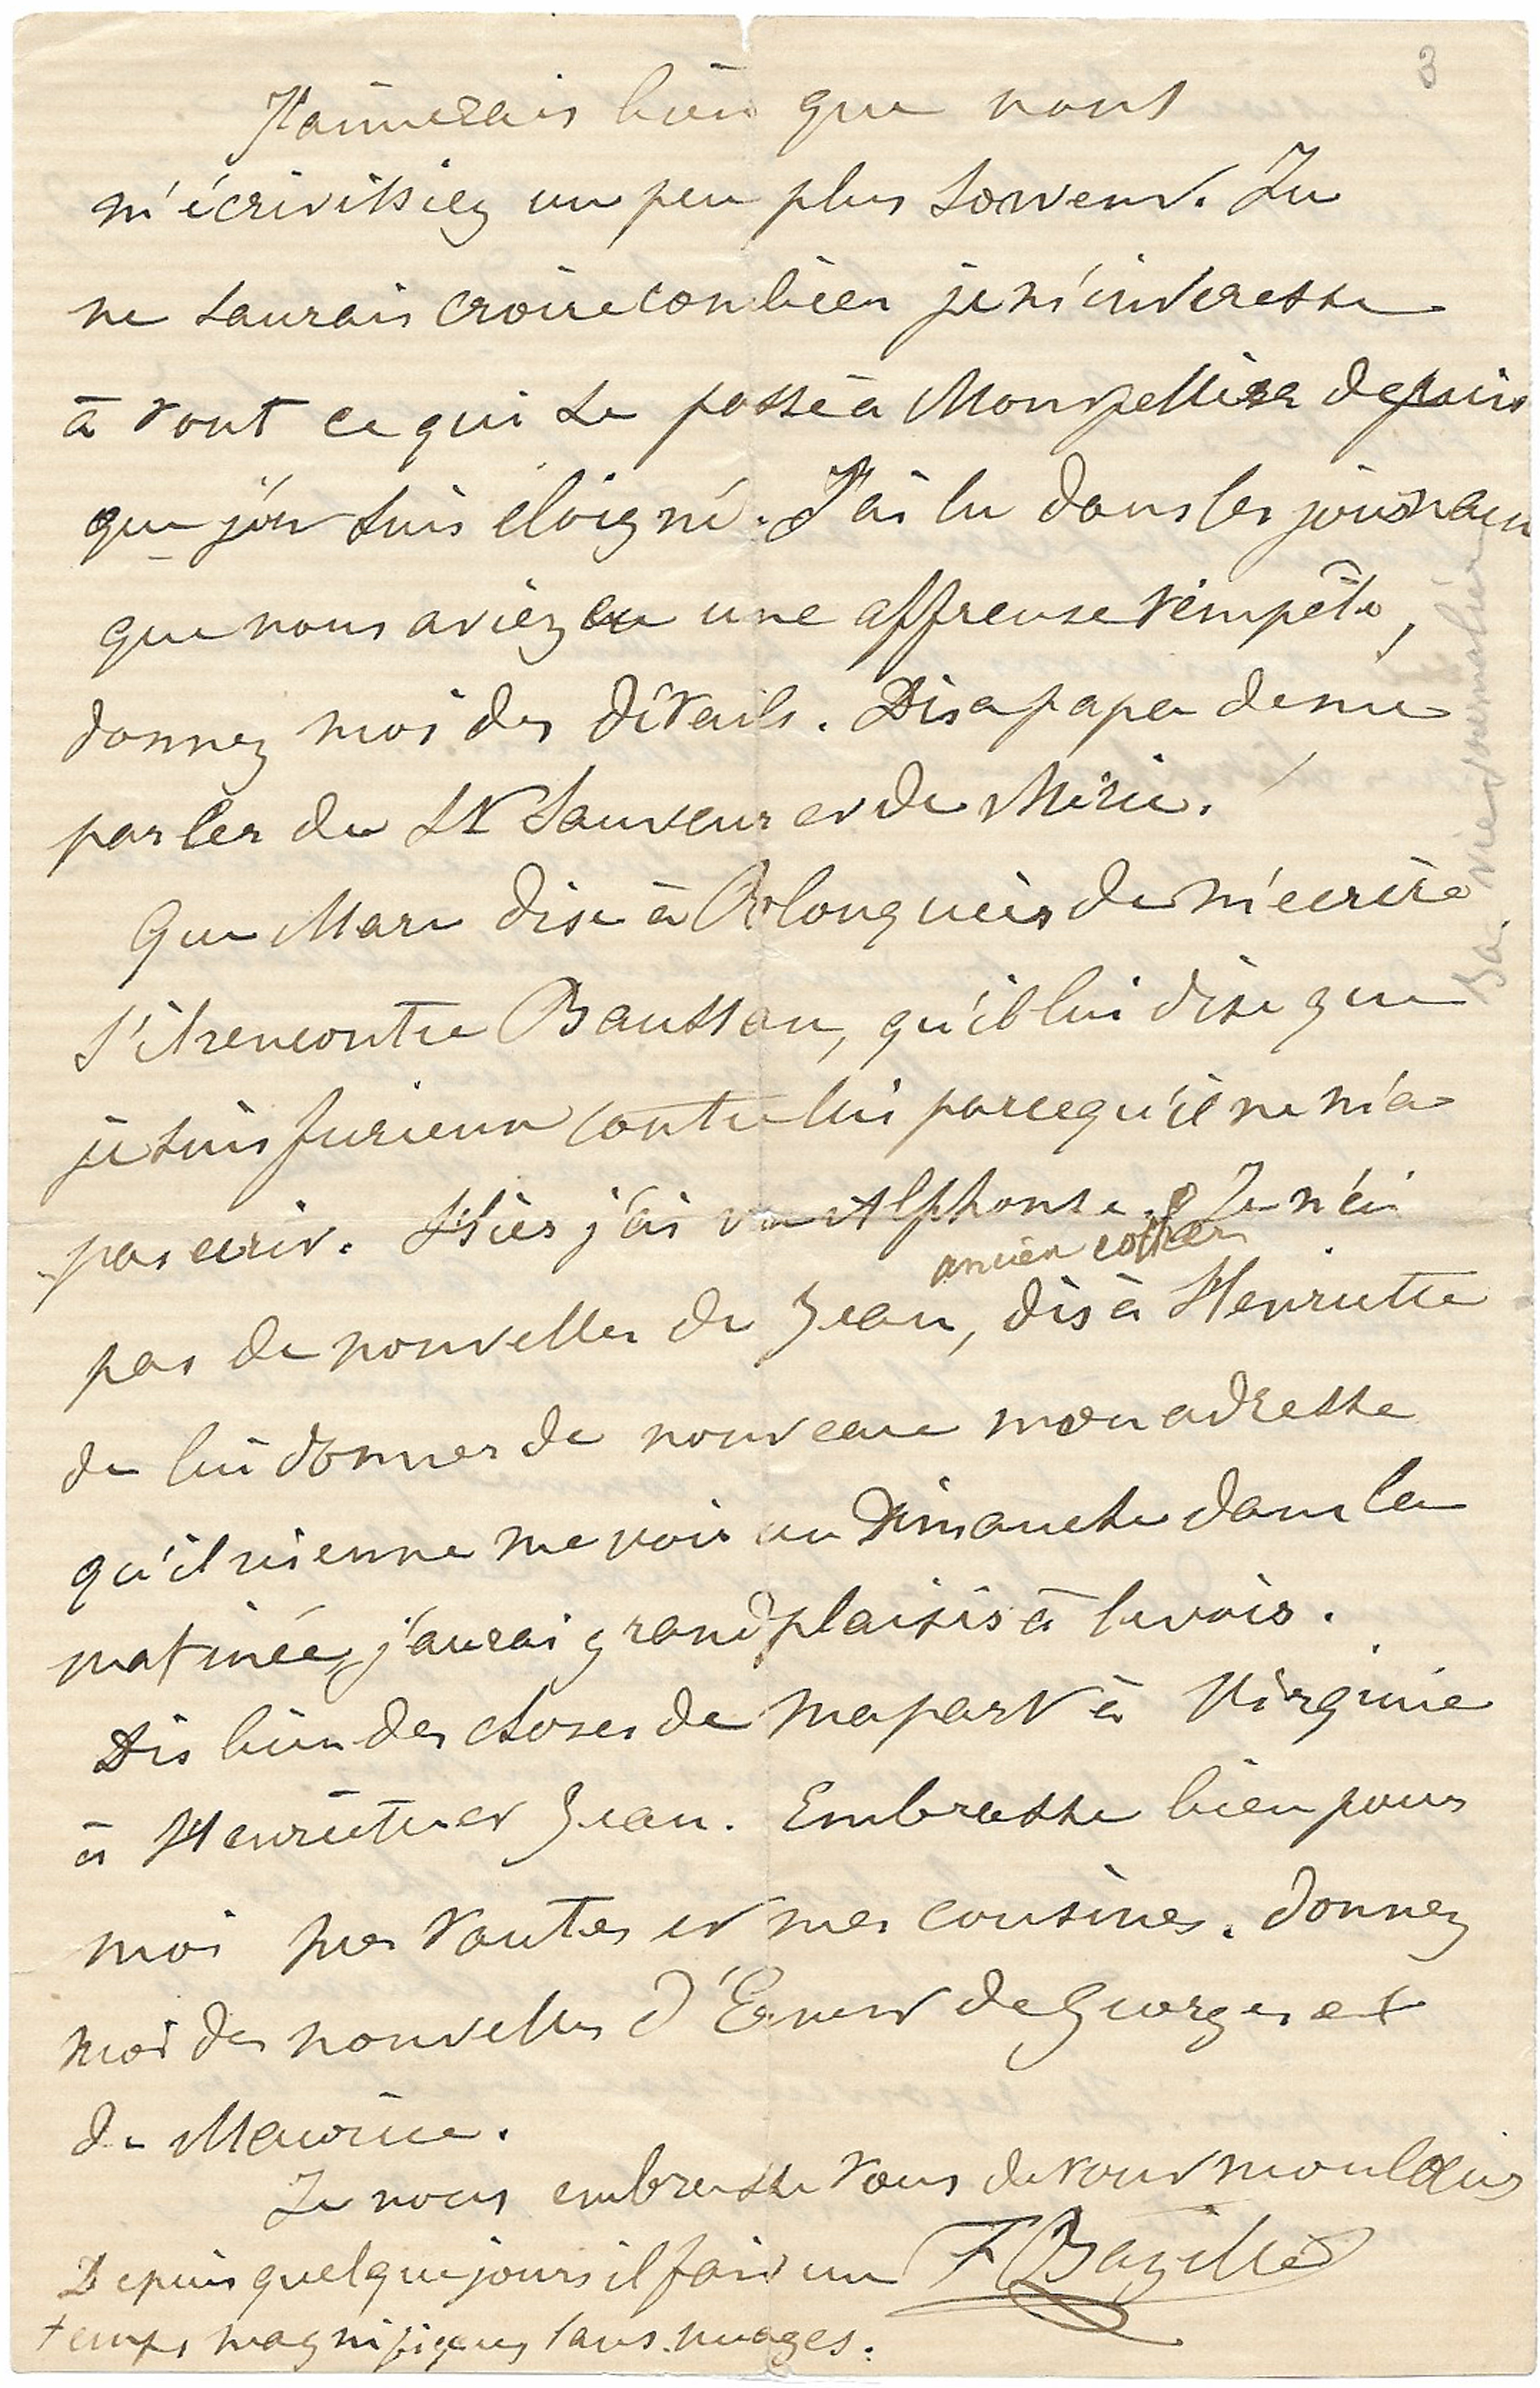 3
J'aimerais bien que vous
m'écrivissiez un peu plus souvent. Tu
ne saurais croire combien je m'interesse
à tout ce qui se passe à Montpellier depuis
que j'en suis éloigné. J'ai lu dans les journaux
que vous aviez eu une affreuse tempête,
donnez moi des détails. Dis a papa de me
parler du St Sauveur et de Méric.
Que Marc dise à Blonquier de m'ecrire
s'il rencontre Baussan, qu'il lui dise que
je suis furieux contre lui parcequ'il ne m'a
pas ecrit. Hier j'ai vu Alphonse. Je n'ai
ancien cocher
pas de nouvelles de Jean, dis à Henriette
de lui donner de nouveau mon adresse
qu'il vienne me voir un Dimanche dans la
matinée, j'aurai grand plaisir à le voir.
Dis bien des choses de ma part à Virginie
à Henriette et Jean. Embrasse bien pour
moi mes tantes et mes cousines. donnez
moi des nouvelles d'Ernest de Georges et
de Maurice.
Je vous embrasse tous de tout mon cœur
F Bazille
Depuis quelque jours il fait un
temps magnifique, sans nuages.
Sa vie journalière